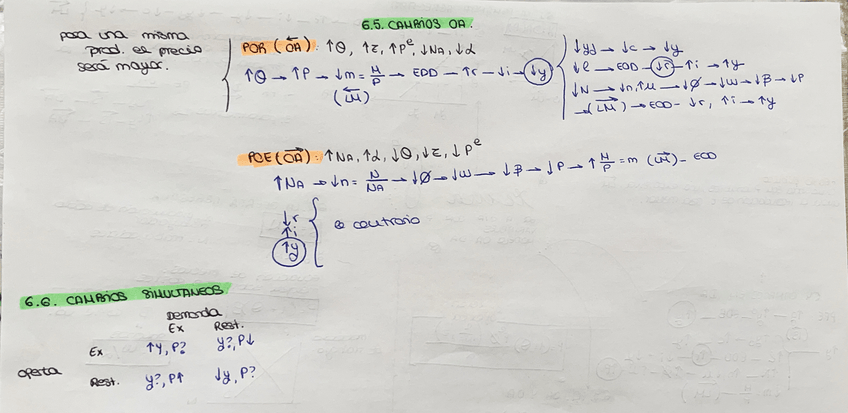 6.5. CAMBIOS OA.
para una misma
prod. el precio
será mayor.
POR (←OA): ↑θ, ↑z, ↑Pᵉ, ↓NA, ↓α
↑θ → ↑P → ↓m = M/P → EDD → ↑r → ↓i → ↓y
(←LM)
↓yd → ↓c → ↓y
↓l → EOD → ↓r → ↑i → ↑y
↓N → ↓n, ↑μ → ↓Ø → ↓w → ↓β → ↓P
→ (→LM) → EOD → ↓r, ↑i → ↑y
POE (→OA): ↑NA, ↑α, ↓θ, ↓z, ↓Pᵉ
↑NA → ↓n = N/NA → ↓Ø → ↓w → ↓β → ↓P → ↑M/P = m (→LM) – EOD
↓r
↑i
↑y
lo contrario
6.6. CAMBIOS SIMULTANEOS
Demanda
Ex Rest.
Ex ↑y, P? y?, P↓
oferta
Rest. y?, P↑ ↓y, P?